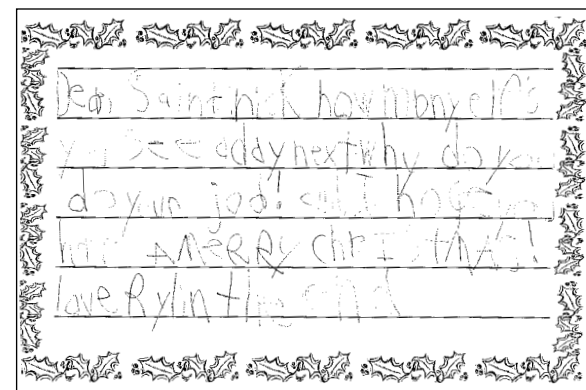 Dear Saint nick how mony elf's
you see adday next why do you
do yur jod! and I hope you
have A MERRY chrIstmas!
love Rylin the end